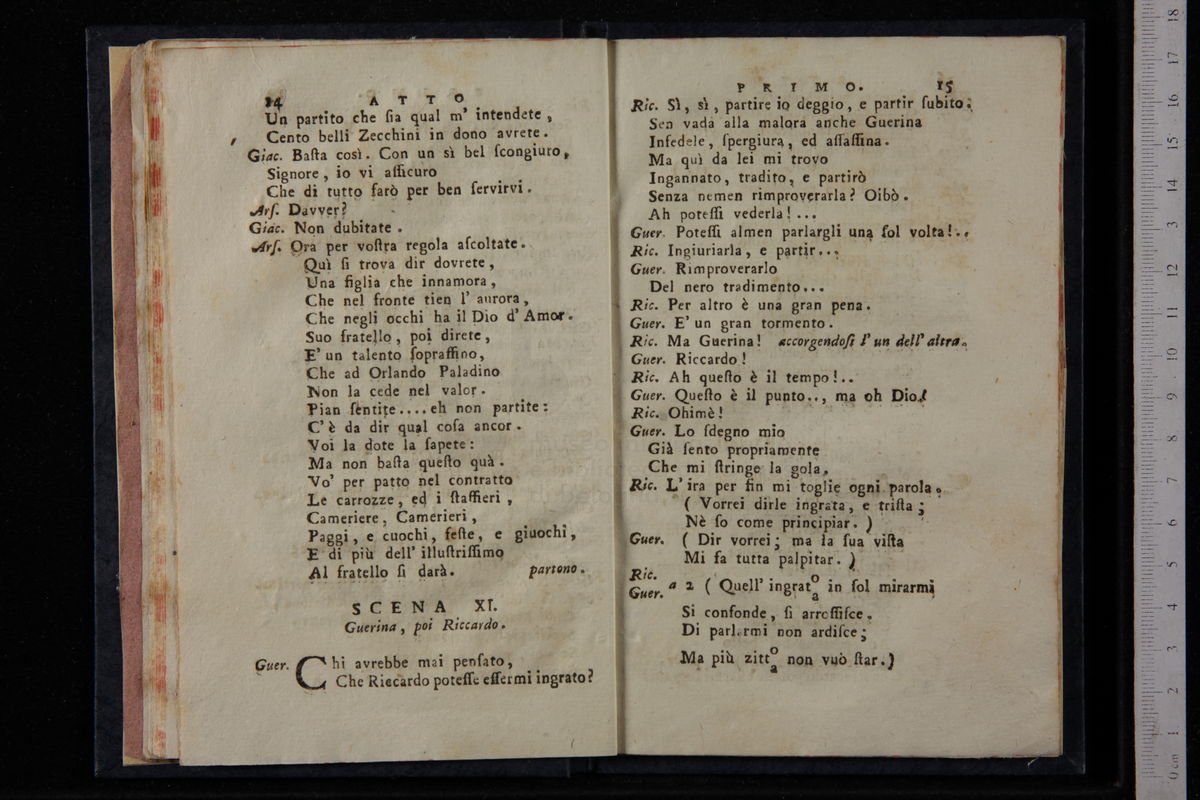 14 ATTO
Un partito che ſia qual m' intendete,
Cento belli Zecchini in dono avrete.
Giac. Baſta così. Con un sì bel ſcongiuro,
Signore, io vi aſſicuro
Che di tutto farò per ben ſervirvi.
Arſ. Davver?
Giac. Non dubitate.
Arſ. Ora per voſtra regola aſcoltate.
Quì ſi trova dir dovrete,
Una figlia che innamora,
Che nel fronte tien l' aurora,
Che negli occhi ha il Dio d' Amor.
Suo fratello, poi direte,
E' un talento ſopraffino,
Che ad Orlando Paladino
Non la cede nel valor.
Pian ſentite.... eh non partite:
C' è da dir qual coſa ancor.
Voi la dote la ſapete:
Ma non baſta queſto quà.
Vo' per patto nel contratto
Le carrozze, ed i ſtaffieri,
Cameriere, Camerieri,
Paggi, e cuochi, feſte, e giuochi,
E di più dell' illuſtriſſimo
Al fratello ſi darà. partono.
SCENA XI.
Guerina, poi Riccardo.
Guer. Chi avrebbe mai penſato,
Che Riccardo poteſſe eſſermi ingrato?
PRIMO. 15
Ric. Sì, sì, partire io deggio, e partir ſubito;
Sen vada alla malora anche Guerina
Infedele, ſpergiura, ed aſſaſſina.
Ma quì da lei mi trovo
Ingannato, tradito, e partirò
Senza nemen rimproverarla? Oibò.
Ah poteſſi vederla!...
Guer. Poteſſi almen parlargli una ſol volta!..
Ric. Ingiuriarla, e partir...
Guer. Rimproverarlo
Del nero tradimento...
Ric. Per altro è una gran pena.
Guer. E' un gran tormento.
Ric. Ma Guerina! accorgendoſi l' un dell' altra.
Guer. Riccardo!
Ric. Ah queſto è il tempo!..
Guer. Queſto è il punto.., ma oh Dio!
Ric. Ohimè!
Guer. Lo ſdegno mio
Già ſento propriamente
Che mi ſtringe la gola.
Ric. L' ira per fin mi toglie ogni parola.
( Vorrei dirle ingrata, e triſta;
Nè ſo come principiar. )
Guer. ( Dir vorrei; ma la ſua viſta
Mi fa tutta palpitar. )
Ric.
Guer. a 2 ( Quell' ingrat o a in ſol mirarmi
Si confonde, ſi arroſſiſce,
Di parlarmi non ardiſce;
Ma più zitt o a non vuò ſtar.)